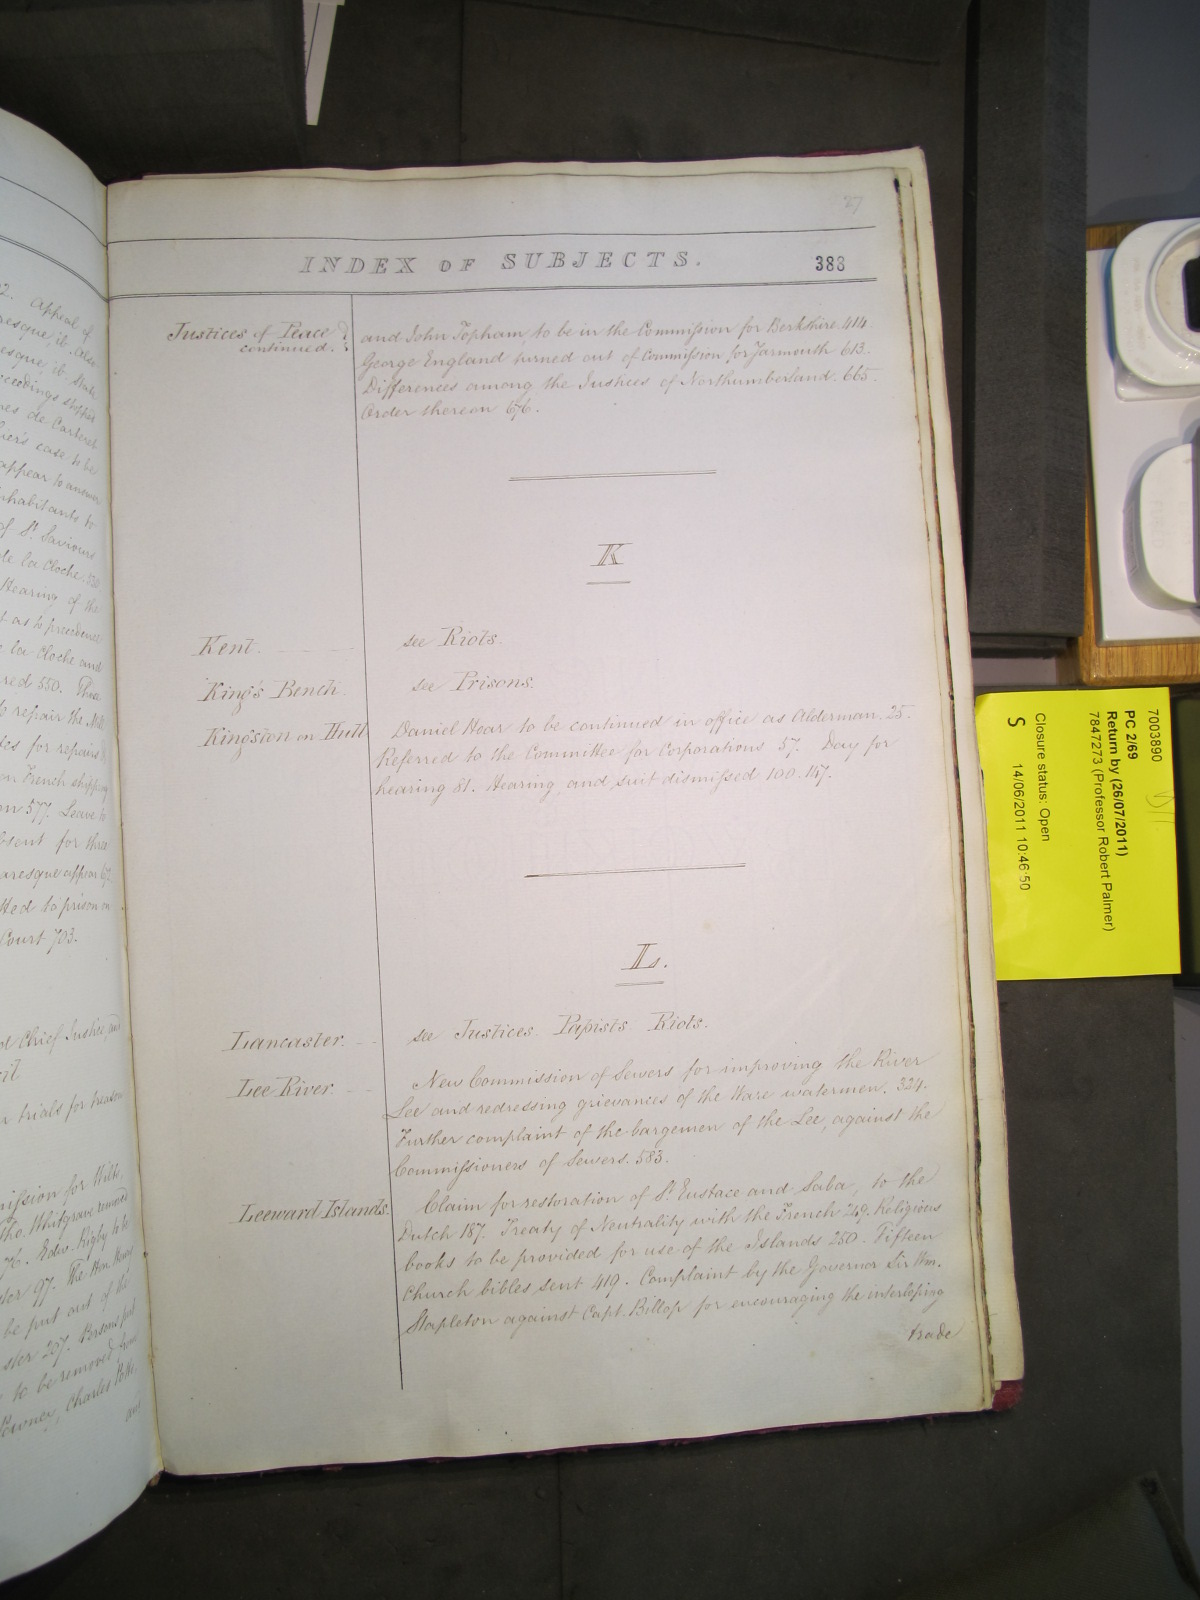 27
INDEX OF SUBJECTS.
383
Justices of Peace
continued.
and John Topham, to be in the Commission for Berkshire. 414
George England turned out of Commission for Yarmouth 613.
Differences among the Justices of Northumberland. 665.
Order thereon 676.
K
Kent. see Riots.
King's Bench. see Prisons.
Kingston on Hull Daniel Hoar to be continued in office as Alderman. 25.
Referred to the Committee for Corporations 57. Day for
hearing 81. Hearing, and suit dismissed 100. 147.
L.
Lancaster. see Justices. Papists. Riots.
Lee River. New Commission of Sewers for improving the River
Lee and redressing grievances of the Ware watermen. 324.
Further complaint of the bargemen of the Lee, against the
Commissioners of Sewers. 583.
Leeward Islands. Claim for restoration of St. Eustace and Saba, to the
Dutch 187. Treaty of Neutrality with the French 249. Religious
books to be provided for use of the Islands 250. Fifteen
Church bibles sent 419. Complaint by the Governor Sir Wm.
Stapleton against Capt. Billop for encouraging the interloping
trade
2. Appeal of
de Carteret
case to be
appear to answer
inhabitants to
of St. Saviours
de la Cloche. 530
Hearing of the
as to precedence
la Cloche and
550. These
to repair the
for repairs
French shipping
577. Leave to
absent for three
appear
to prison on
Court 703.
Chief Justice, and
trials for treason
for Wilts,
Tho. Whitgrave removed
76. Edwd. Rigby to be
97. The Hon Henry
be put out of the
207. Persons put
to be removed from
Charles
and
7003890
PC 2/69
Return by (26/07/2011)
7847273 (Professor Robert Palmer)
Closure status: Open
S 14/06/2011 10:46:50